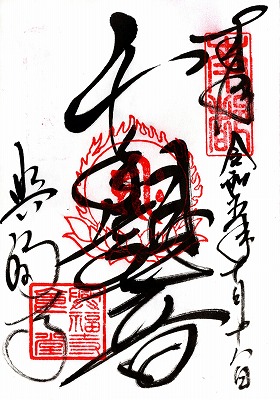 奉拝
令和五年十月十八日
千手観音
興福寺
興福寺